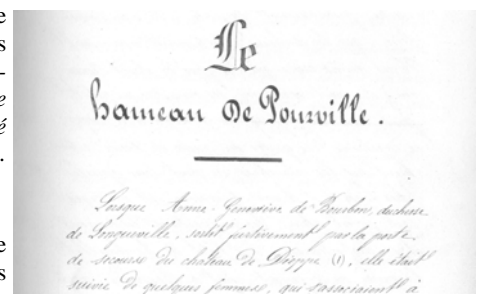 e
s
-
e
é
.
e
s
Le
hameau De Pourville.
Lorsque Anne-Geneviève de Bourbon, duchesse
de Longueville, sortit furtivement par la porte
de secours du château de Dieppe (1), elle était
suivie de quelques femmes, qui s'associaient à